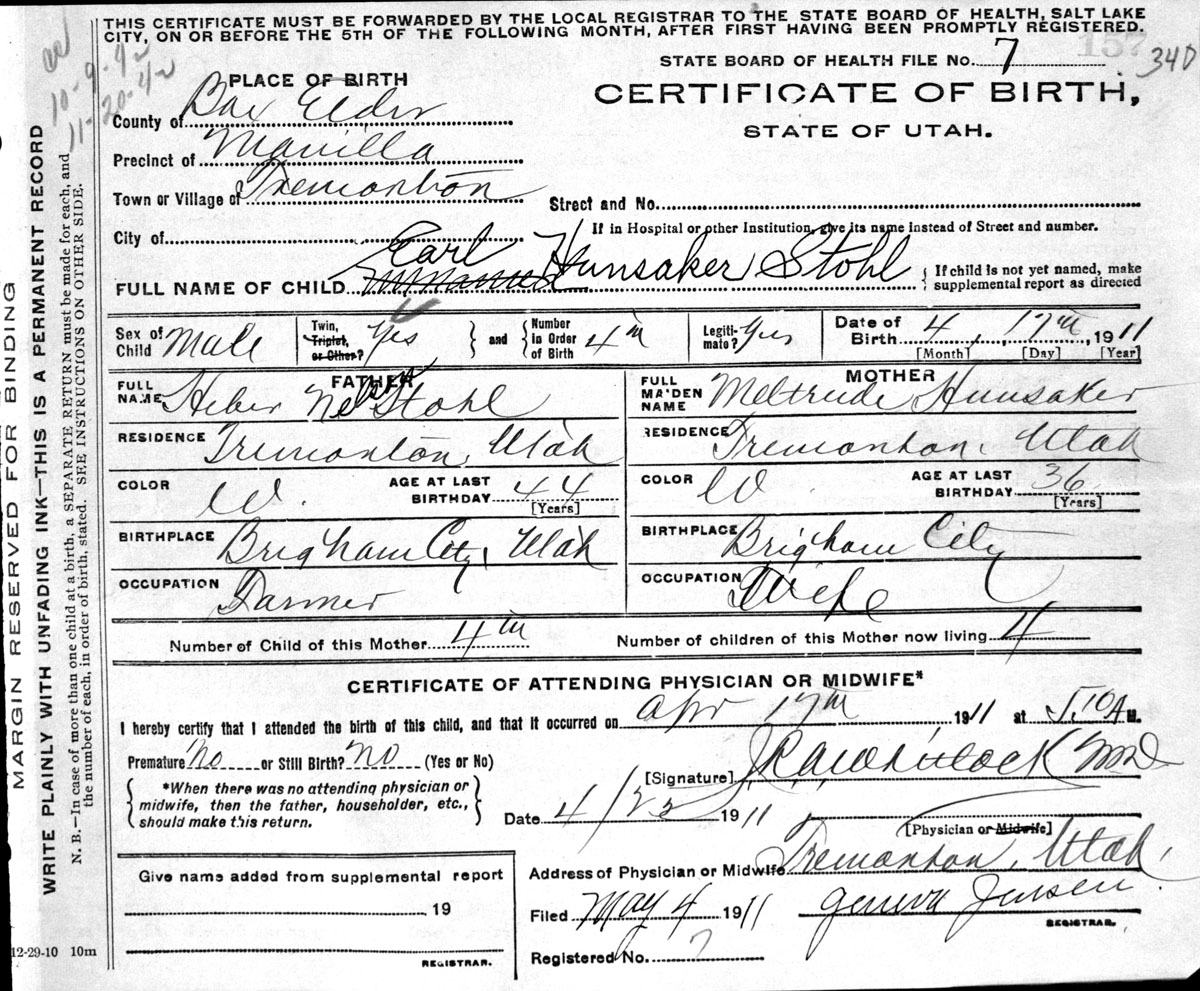 THIS CERTIFICATE MUST BE FORWARDED BY THE LOCAL REGISTRAR TO THE STATE BOARD OF HEALTH, SALT LAKE
CITY, ON OR BEFORE THE 5TH OF THE FOLLOWING MONTH, AFTER FIRST HAVING BEEN PROMPTLY REGISTERED.
157
340
10-9-42
11-20-42
STATE BOARD OF HEALTH FILE No. 7
PLACE OF BIRTH
CERTIFICATE OF BIRTH,
STATE OF UTAH.
County of Box Elder
Precinct of Manilla
Town or Village of Tremonton
Street and No.
City of
If in Hospital or other Institution, give its name instead of Street and number.
FULL NAME OF CHILD Earl Hunsaker Stohl
unnamed
If child is not yet named, make
supplemental report as directed
Sex of Child Male
Twin, Triplet, or Other? Yes
and Number in Order of Birth 4th
Legitimate? Yes
Date of Birth 4, 17th, 1911
[Month] [Day] [Year]
FATHER
FULL NAME Heber Nelsen Stohl
RESIDENCE Tremonton, Utah
COLOR W. AGE AT LAST BIRTHDAY 44
[Years]
BIRTHPLACE Brigham City, Utah
OCCUPATION Farmer
MOTHER
FULL MAIDEN NAME Meltrude Hunsaker
RESIDENCE Tremonton, Utah
COLOR W. AGE AT LAST BIRTHDAY 36
[Years]
BIRTHPLACE Brigham City
OCCUPATION Wife
Number of Child of this Mother 4th Number of children of this Mother now living 4
CERTIFICATE OF ATTENDING PHYSICIAN OR MIDWIFE*
I hereby certify that I attended the birth of this child, and that it occurred on Apr 17th 1911 at 5.10 A M.
Premature No or Still Birth? No (Yes or No)
[Signature] Whitlock MD
*When there was no attending physician or
midwife, then the father, householder, etc.,
should make this return.
Date 4/23 1911
[Physician or Midwife]
Address of Physician or Midwife Tremonton, Utah.
Filed May 4 1911 Geneva Jensen
REGISTRAR.
Registered No. 7
Give name added from supplemental report
19
REGISTRAR.
12-29-10 10m
MARGIN RESERVED FOR BINDING
WRITE PLAINLY WITH UNFADING INK—THIS IS A PERMANENT RECORD
N. B.—In case of more than one child at a birth, a SEPARATE RETURN must be made for each, and
the number of each, in order of birth, stated. SEE INSTRUCTIONS ON OTHER SIDE.